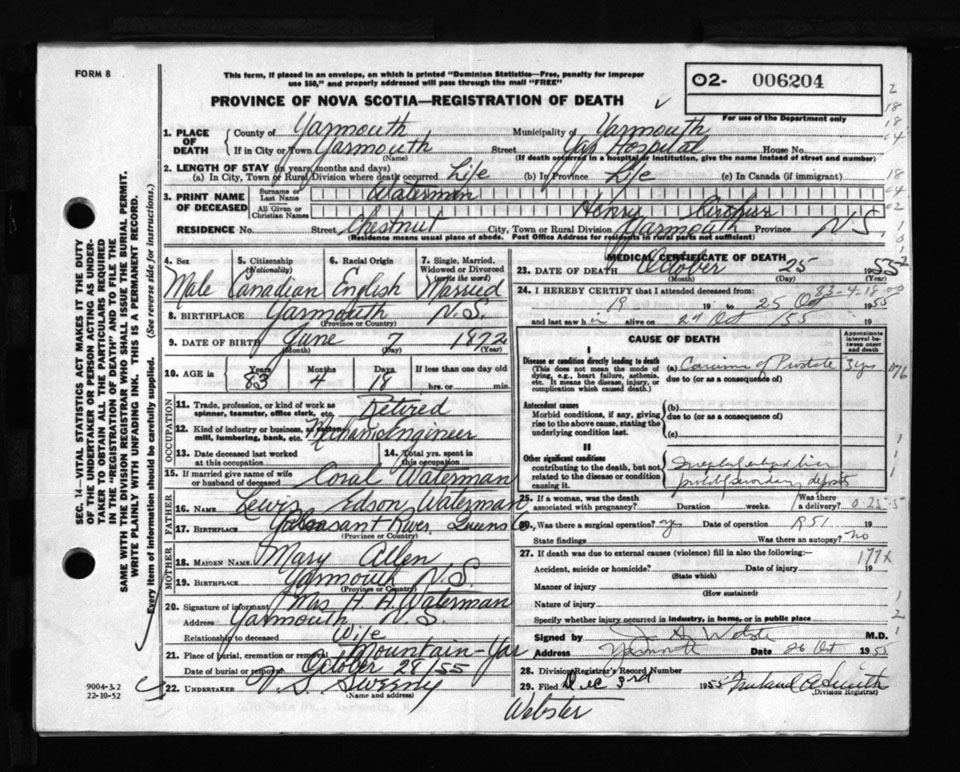 FORM 8
This form, if placed in an envelope, on which is printed "Dominion Statistics—Free, penalty for improper
use $50," and properly addressed will pass through the mail "FREE"
O2- 006204
For use of the Department only
PROVINCE OF NOVA SCOTIA—REGISTRATION OF DEATH
1. PLACE OF DEATH County of Yarmouth Municipality of Yarmouth
If in City or Town Yarmouth Street Yar Hospital House No.
(Name) (If death occurred in a hospital or institution, give the name instead of street and number)
2. LENGTH OF STAY (in years, months and days)
(a) In City, Town or Rural Division where death occurred Life (b) In Province Life (c) In Canada (if immigrant)
3. PRINT NAME OF DECEASED Surname or Last Name Waterman
All Given or Christian Names Henry
RESIDENCE No. Street Chestnut City, Town or Rural Division Yarmouth Province N.S.
(Residence means usual place of abode. Post Office Address for residents in rural parts not sufficient)
4. Sex 5. Citizenship (Nationality) 6. Racial Origin 7. Single, Married, Widowed or Divorced (write the word)
Male Canadian English Married
8. BIRTHPLACE Yarmouth N.S.
(Province or Country)
9. DATE OF BIRTH June 7 1872
(Month) (Day) (Year)
10. AGE in Years 83 Months 4 Days 18 If less than one day hrs. or min.
OCCUPATION
11. Trade, profession, or kind of work as spinner, teamster, office clerk, etc. Retired
12. Kind of industry or business, as cotton mill, lumbering, bank, etc. Mechanic Engineer
13. Date deceased last worked at this occupation 14. Total yrs. spent in this occupation
15. If married give name of wife or husband of deceased Coral Waterman
FATHER
16. NAME Lewis Edson Waterman
17. BIRTHPLACE Pleasant River, Queens Co.
(Province or Country)
MOTHER
18. MAIDEN NAME Mary Allen
19. BIRTHPLACE Yarmouth N.S.
(Province or Country)
20. Signature of informant Mrs. H. A. Waterman
Address Yarmouth N.S.
Relationship to deceased Wife
21. Place of burial, cremation or removal Mountain-Yar
Date of burial or removal October 28/55
22. UNDERTAKER V. S. Sweeny
(Name and address)
MEDICAL CERTIFICATE OF DEATH
23. DATE OF DEATH October 25 1955
(Month) (Day) (Year)
24. I HEREBY CERTIFY that I attended deceased from: 83-4-18
19 to 25 Oct 1955
and last saw him alive on Oct 1955
CAUSE OF DEATH
Approximate interval between onset and death
I
Disease or condition directly leading to death
(This does not mean the mode of dying, e.g., heart failure, asthenia, etc. It means the disease, injury, or complication which caused death.)
(a) of Prostate 3 yrs
due to (or as a consequence of)
Antecedent causes
Morbid conditions, if any, giving rise to the above cause, stating the underlying condition last.
(b)
due to (or as a consequence of)
(c)
II
Other significant conditions
contributing to the death, but not related to the disease or condition causing it.
deposits
25. If a woman, was the death associated with pregnancy? Duration weeks. Was there a delivery?
26. Was there a surgical operation? Date of operation 19
State findings Was there an autopsy? no
27. If death was due to external causes (violence) fill in also the following:—
177X
Accident, suicide or homicide? Date of injury 19
(State which)
Manner of injury
(How sustained)
Nature of injury
Specify whether injury occurred in industry, in home, or in public place
Signed by M.D.
Address Yarmouth Date 26 Oct 1955
28. Division Registrar's Record Number
29. Filed Dec 3rd 1955
(Division Registrar)
Webster
9004-3.2
22-10-52
SEC. 14—VITAL STATISTICS ACT MAKES IT THE DUTY
OF THE UNDERTAKER OR PERSON ACTING AS UNDER-
TAKER TO OBTAIN ALL THE PARTICULARS REQUIRED
IN THE "REGISTRATION OF DEATH" AND TO FILE THE
SAME WITH THE DIVISION REGISTRAR WHO SHALL ISSUE THE BURIAL PERMIT.
WRITE PLAINLY WITH UNFADING INK. THIS IS A PERMANENT RECORD.
Every item of information should be carefully supplied. (See reverse side for instructions.)